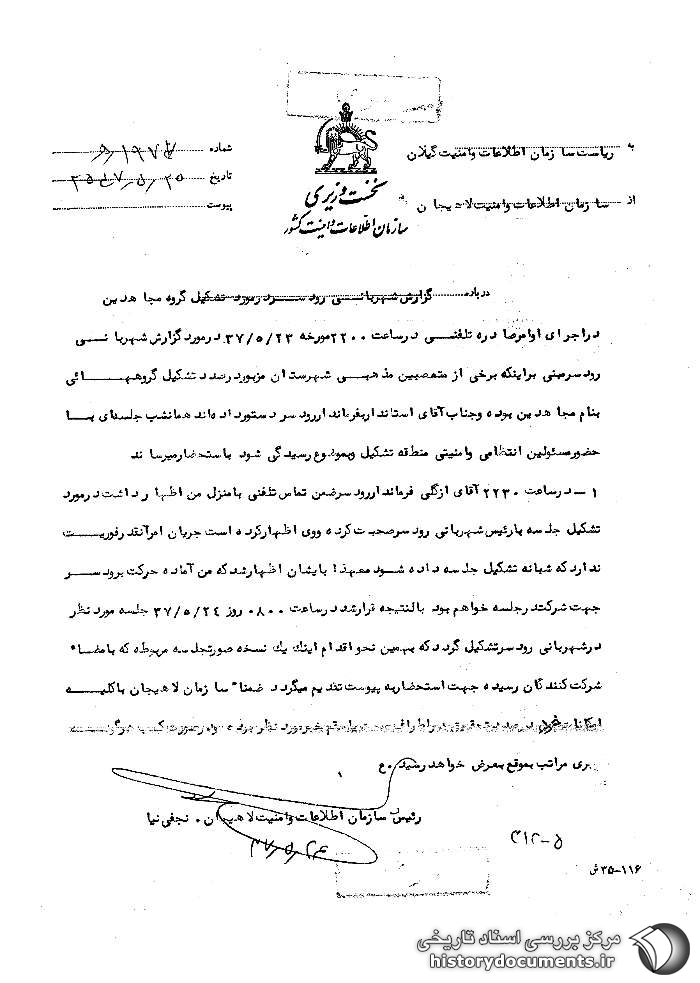 به ریاست سازمان اطلاعات وامنیت گیلان
از سازمان اطلاعات وامنیت لاهیجان
شماره
تاریخ
پیوست
نخست وزیری
سازمان اطلاعات و امنیت کشور
درباره گزارش شهربانی رودسر درمورد تشکیل گروه مجاهدین
دراجرای اوامرصادره تلفنی درساعت ۲۲۰۰ مورخه ۳۷/۵/۲۳ درمورد گزارش شهربانی
رودسرمبنی براینکه برخی از متعصبین مذهبی شهرستان مزبور درصدد تشکیل گروههائی
بنام مجاهدین بوده وجناب آقای استاندار بفرماندار رودسر دستورداده اند همانشب جلسه ای با
حضورمسئولین انتظامی وامنیتی منطقه تشکیل وبموضوع رسیدگی شود باستحضارمیرساند
۱ – درساعت ۲۲۳۰ آقای ازگلی فرماندار رودسرضمن تماس تلفنی بامنزل من اظهارداشت درمورد
تشکیل جلسه بارئیس شهربانی رودسرصحبت کرده ووی اظهارکرده است جریان امرآنقدرفوریت
نداردکه شبانه تشکیل جلسه داده شود معهذا بایشان اظهارشدکه من آماده حرکت برودسر
جهت شرکت درجلسه خواهم بود بالنتیجه قرارشد درساعت ۰۸۰۰ روز ۳۷/۵/۲٤ جلسه مورد نظر
درشهربانی رودسرتشکیل گردد که بهمین نحو اقدام اینك یك نسخه صورتجلسه مربوطه که بامضاء
شرکت کنندگان رسیده جهت استحضاربه پیوست تقدیم میگردد ضمنا" سازمان لاهیجان باکلیه
امکانات خود درصدد تحقیق در اطراف مورد نظر بوده ودرصورت کسب هرگونه
خبری مراتب بموقع بعرض خواهد رسید. ع
رئیس سازمان اطلاعات وامنیت لاهیجان . نجفی نیا
۳۷/۵/۲۴
۳۱۲-۵
۱۱۶-۳۵ ش
مرکز بررسی اسناد تاریخی
historydocuments.ir